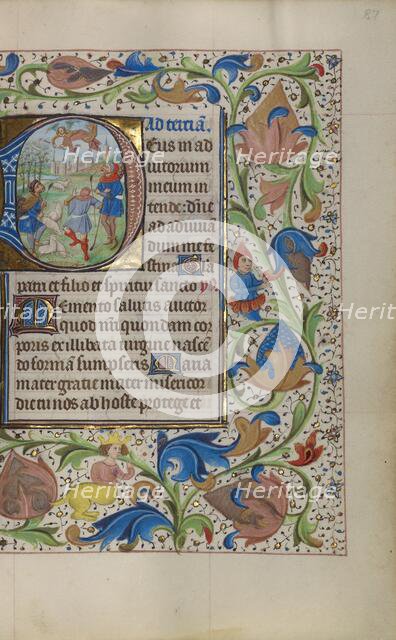 87
Ad terciā.
Eus in ad
iutorium
meum in
tende. dn̄e
ad adiuuā
dum me fe
stina
patri et filio et spiritui sancto
Memento salutis auctor
quod nr̄i quondam cor
poris ex illibata uirgine nascē
do formam sumpseris Maria
mater gratie mater misericor
die tu nos ab hoste protege et
Heritage
Heritage
Heritage
Heritage
Heritage
Heritage
Images